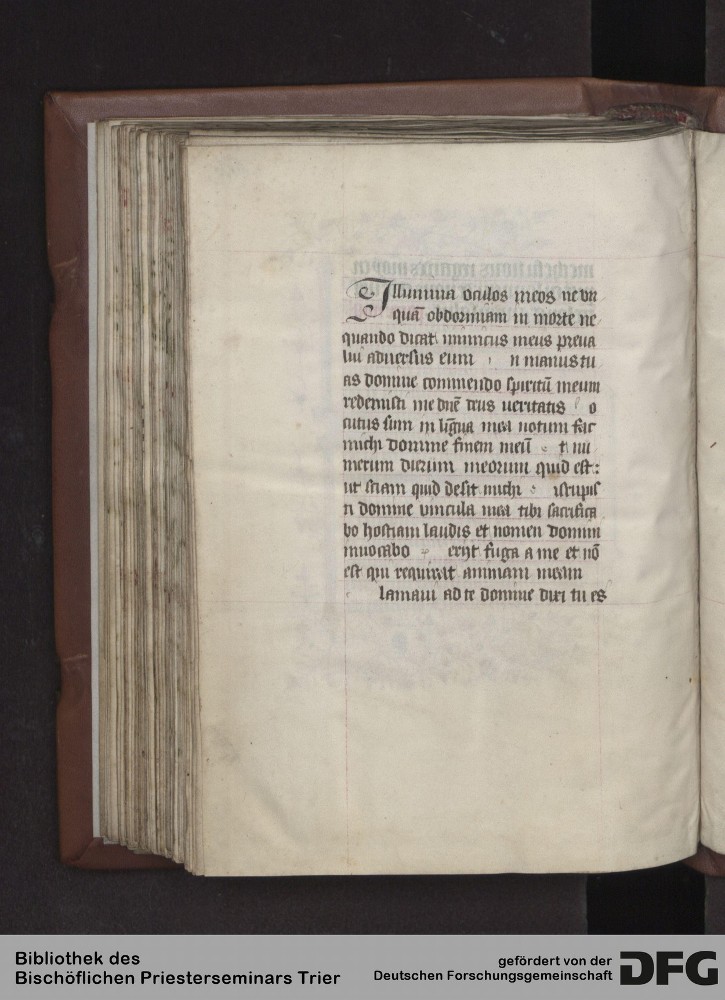 Illumina oculos meos ne vn
quā obdormiam in morte ne
quando dicat inimicus meus preua
lui aduersus eum n manus tu
as domine commendo spiritū meum
redemisti me dnē deus ueritatis o
cutus sum in līgua mea notum fac
michi domine finem meū t nu
merum dierum meorum quid est:
ut sciam quid desit michi isrupis
ti domine vincula mea tibi sacrifica
bo hostiam laudis et nomen domini
inuocabo erijt fuga a me et nō
est qui requirit animam meam
lamaui ad te domine dixi tu es
Bibliothek des
Bischöflichen Priesterseminars Trier
gefördert von der
Deutschen Forschungsgemeinschaft
DFG